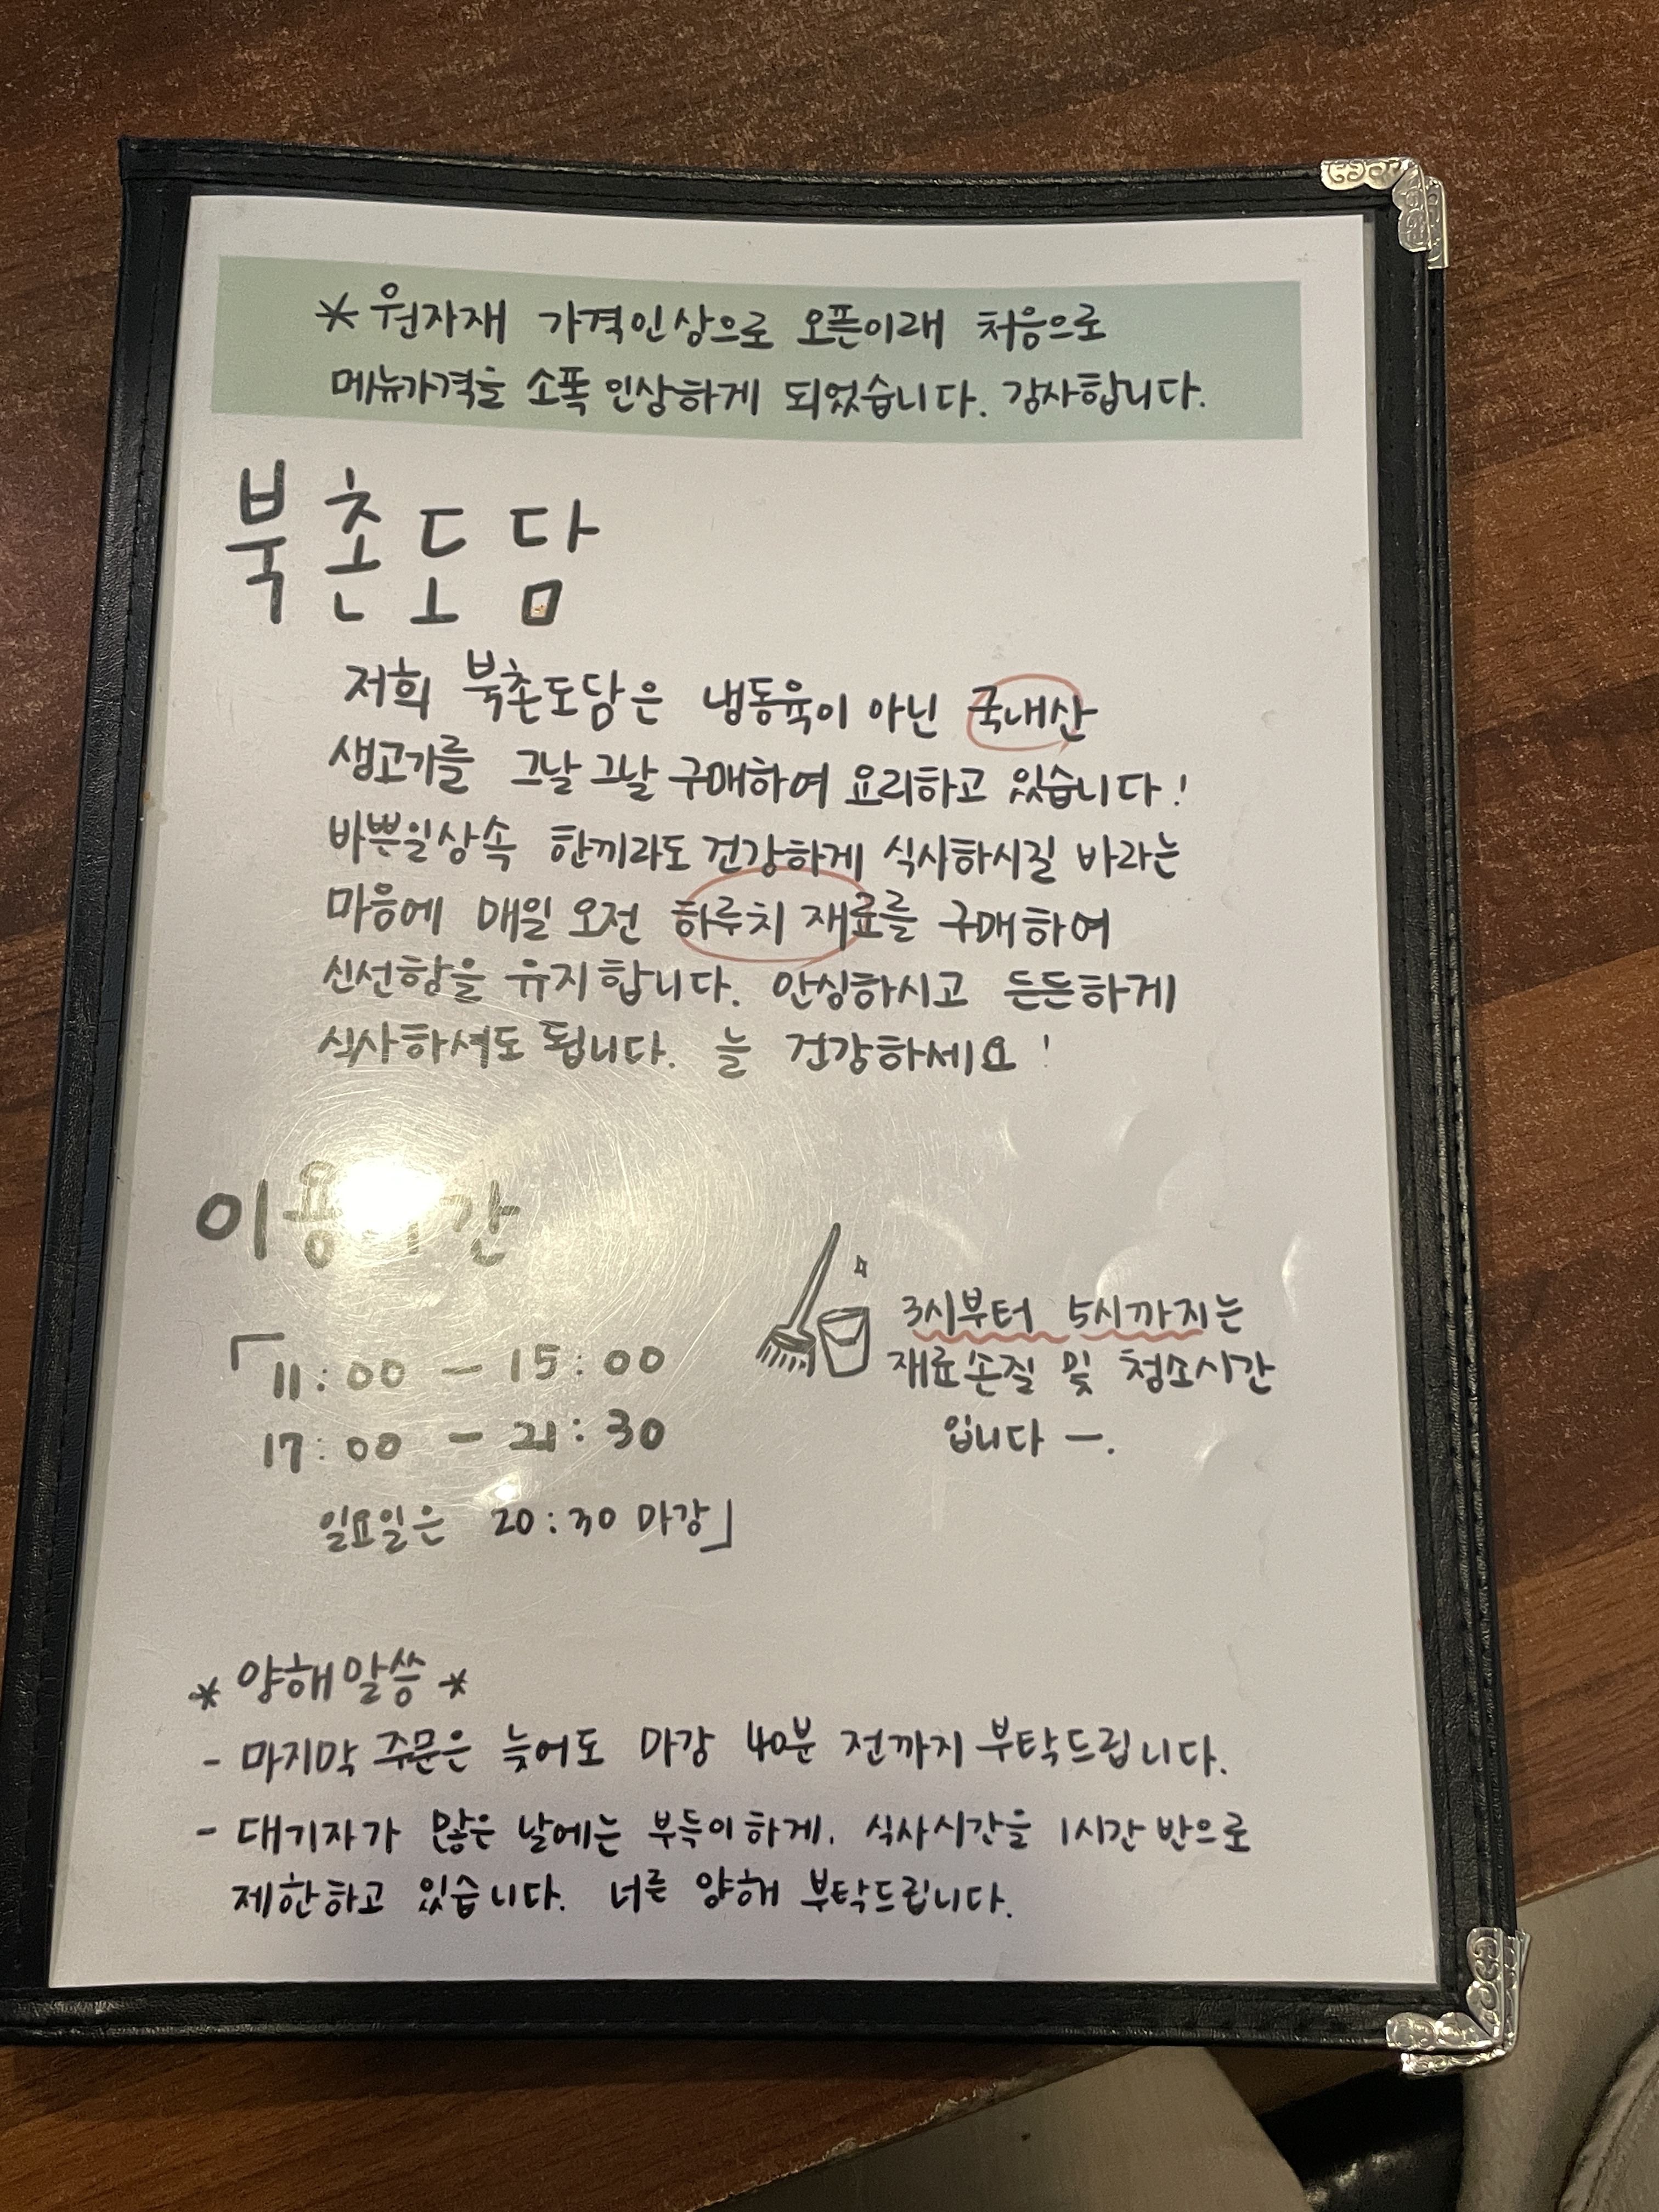 * 원자재 가격인상으로 오픈이래 처음으로
메뉴가격을 소폭 인상하게 되었습니다. 감사합니다.
북촌도담
저희 북촌도담은 냉동육이 아닌 국내산
생고기를 그날그날 구매하여 요리하고 있습니다!
바쁜일상속 한끼라도 건강하게 식사하시길 바라는
마음에 매일 오전 하루치 재료를 구매하여
신선함을 유지합니다. 안심하시고 든든하게
식사하셔도 됩니다. 늘 건강하세요!
이용시간
「11:00 - 15:00
17:00 - 21:30
일요일은 20:30 마감」
3시부터 5시까지는
재료손질 및 청소시간
입니다 -.
* 양해말씀 *
- 마지막 주문은 늦어도 마감 40분 전까지 부탁드립니다.
- 대기자가 많은 날에는 부득이하게. 식사시간을 1시간 반으로
제한하고 있습니다. 너른 양해 부탁드립니다.